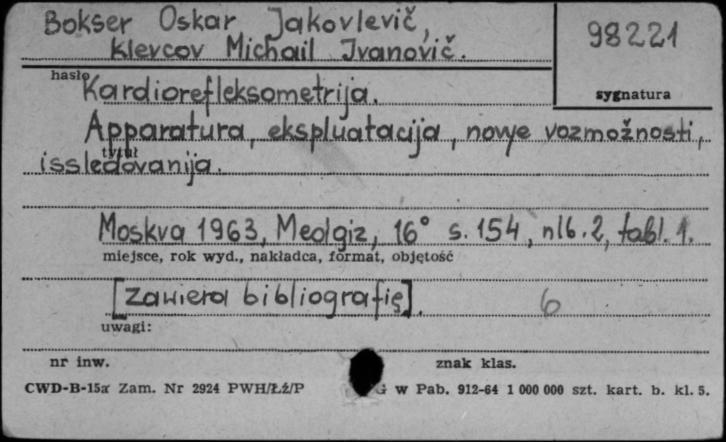 Bokser Oskar Jakovlevič,
98221
Klevcov Michail Ivanovič.
hasło
sygnatura
Kardiorefleksometrija.
Apparatura, ekspluatacija, novye vozmožnosti,
tytuł
issledovanija.
Moskva 1963, Medgiz, 16° s. 154, nlb. 2, tabl. 1.
miejsce, rok wyd., nakładca, format, objętość
[Zawiera bibliografię].
6
uwagi:
nr inw.
znak klas.
CWD-B-15a Zam. Nr 2924 PWH/Łź/P G w Pab. 912-64 1 000 000 szt. kart. b. kl. 5.